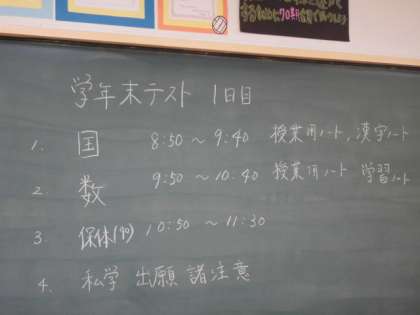 学年末テスト 1日目
1. 国 8:50 ～ 9:40 授業用ノート,漢字ノート
2 数 9:50 ～ 10:40 授業用ノート 学習ノート
3 保体 10:50 ～ 11:30
4. 私学 出願 諸注意